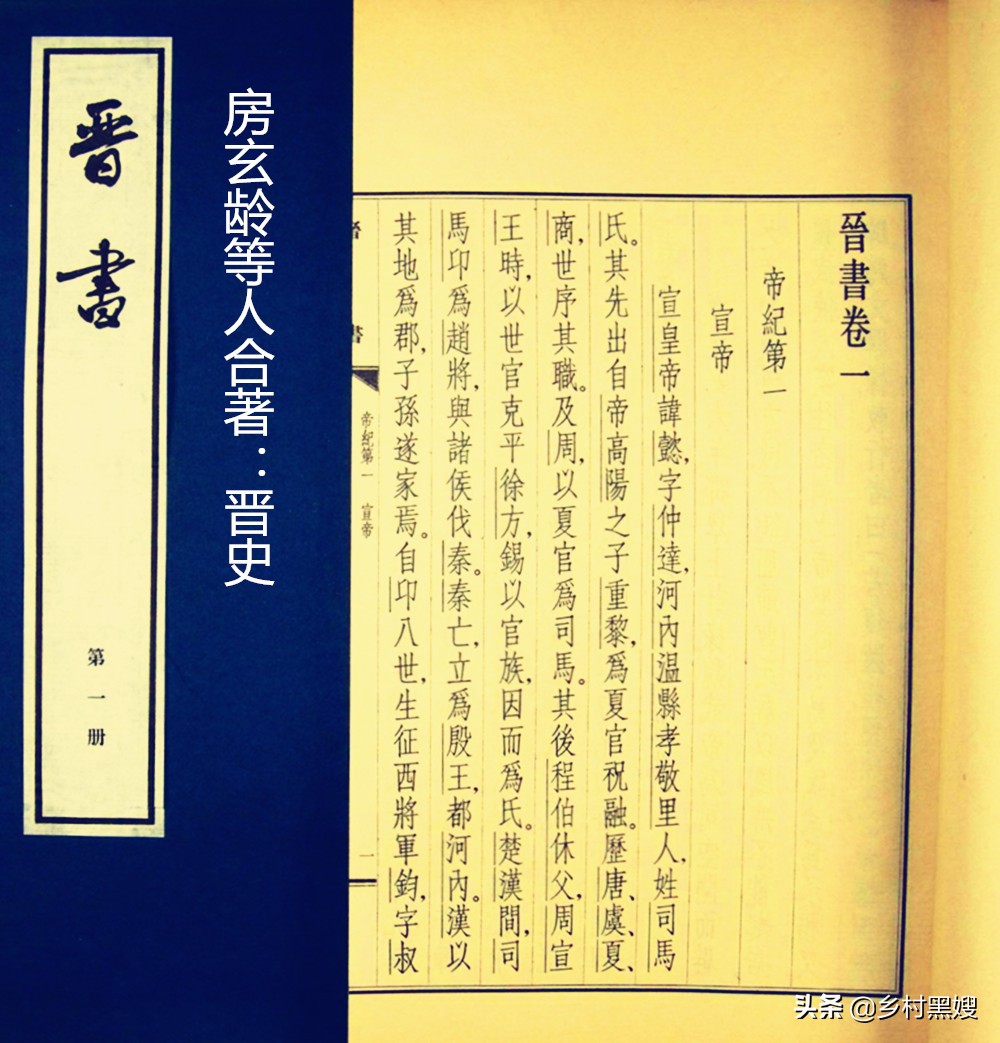 晋書
第一册
房玄龄等人合著：晋史
晉書卷一
帝紀第一
宣帝
宣皇帝諱懿，字仲達，河內溫縣孝敬里人，姓司馬
氏。其先出自帝高陽之子重黎，爲夏官祝融。歷唐、虞、夏、
商，世序其職。及周，以夏官爲司馬。其後程伯休父，周宣
王時，以世官克平徐方，錫以官族，因而爲氏。楚漢間，司
馬卬爲趙將，與諸侯伐秦。秦亡，立爲殷王，都河內。漢以
其地爲郡，子孫遂家焉。自卬八世，生征西將軍鈞，字叔
書
帝紀第一 宣帝
一
头条 @乡村黑嫂